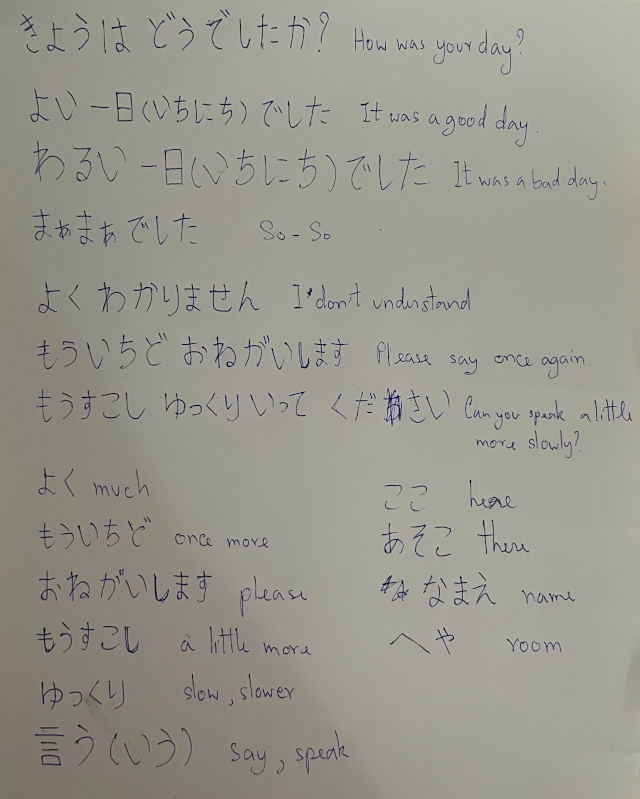 きょうは どうでしたか? How was your day?
よい 一日(いちにち)でした It was a good day.
わるい 一日(いちにち)でした It was a bad day.
まぁまぁでした So-So
よく わかりません I don't understand
もういちど おねがいします Please say once again.
もうすこし ゆっくりいって ください Can you speak a little
more slowly?
よく much
もういちど once more
おねがいします please
もうすこし a little more
ゆっくり slow, slower
言う(いう) say, speak
ここ here
あそこ there
なまえ name
へや room